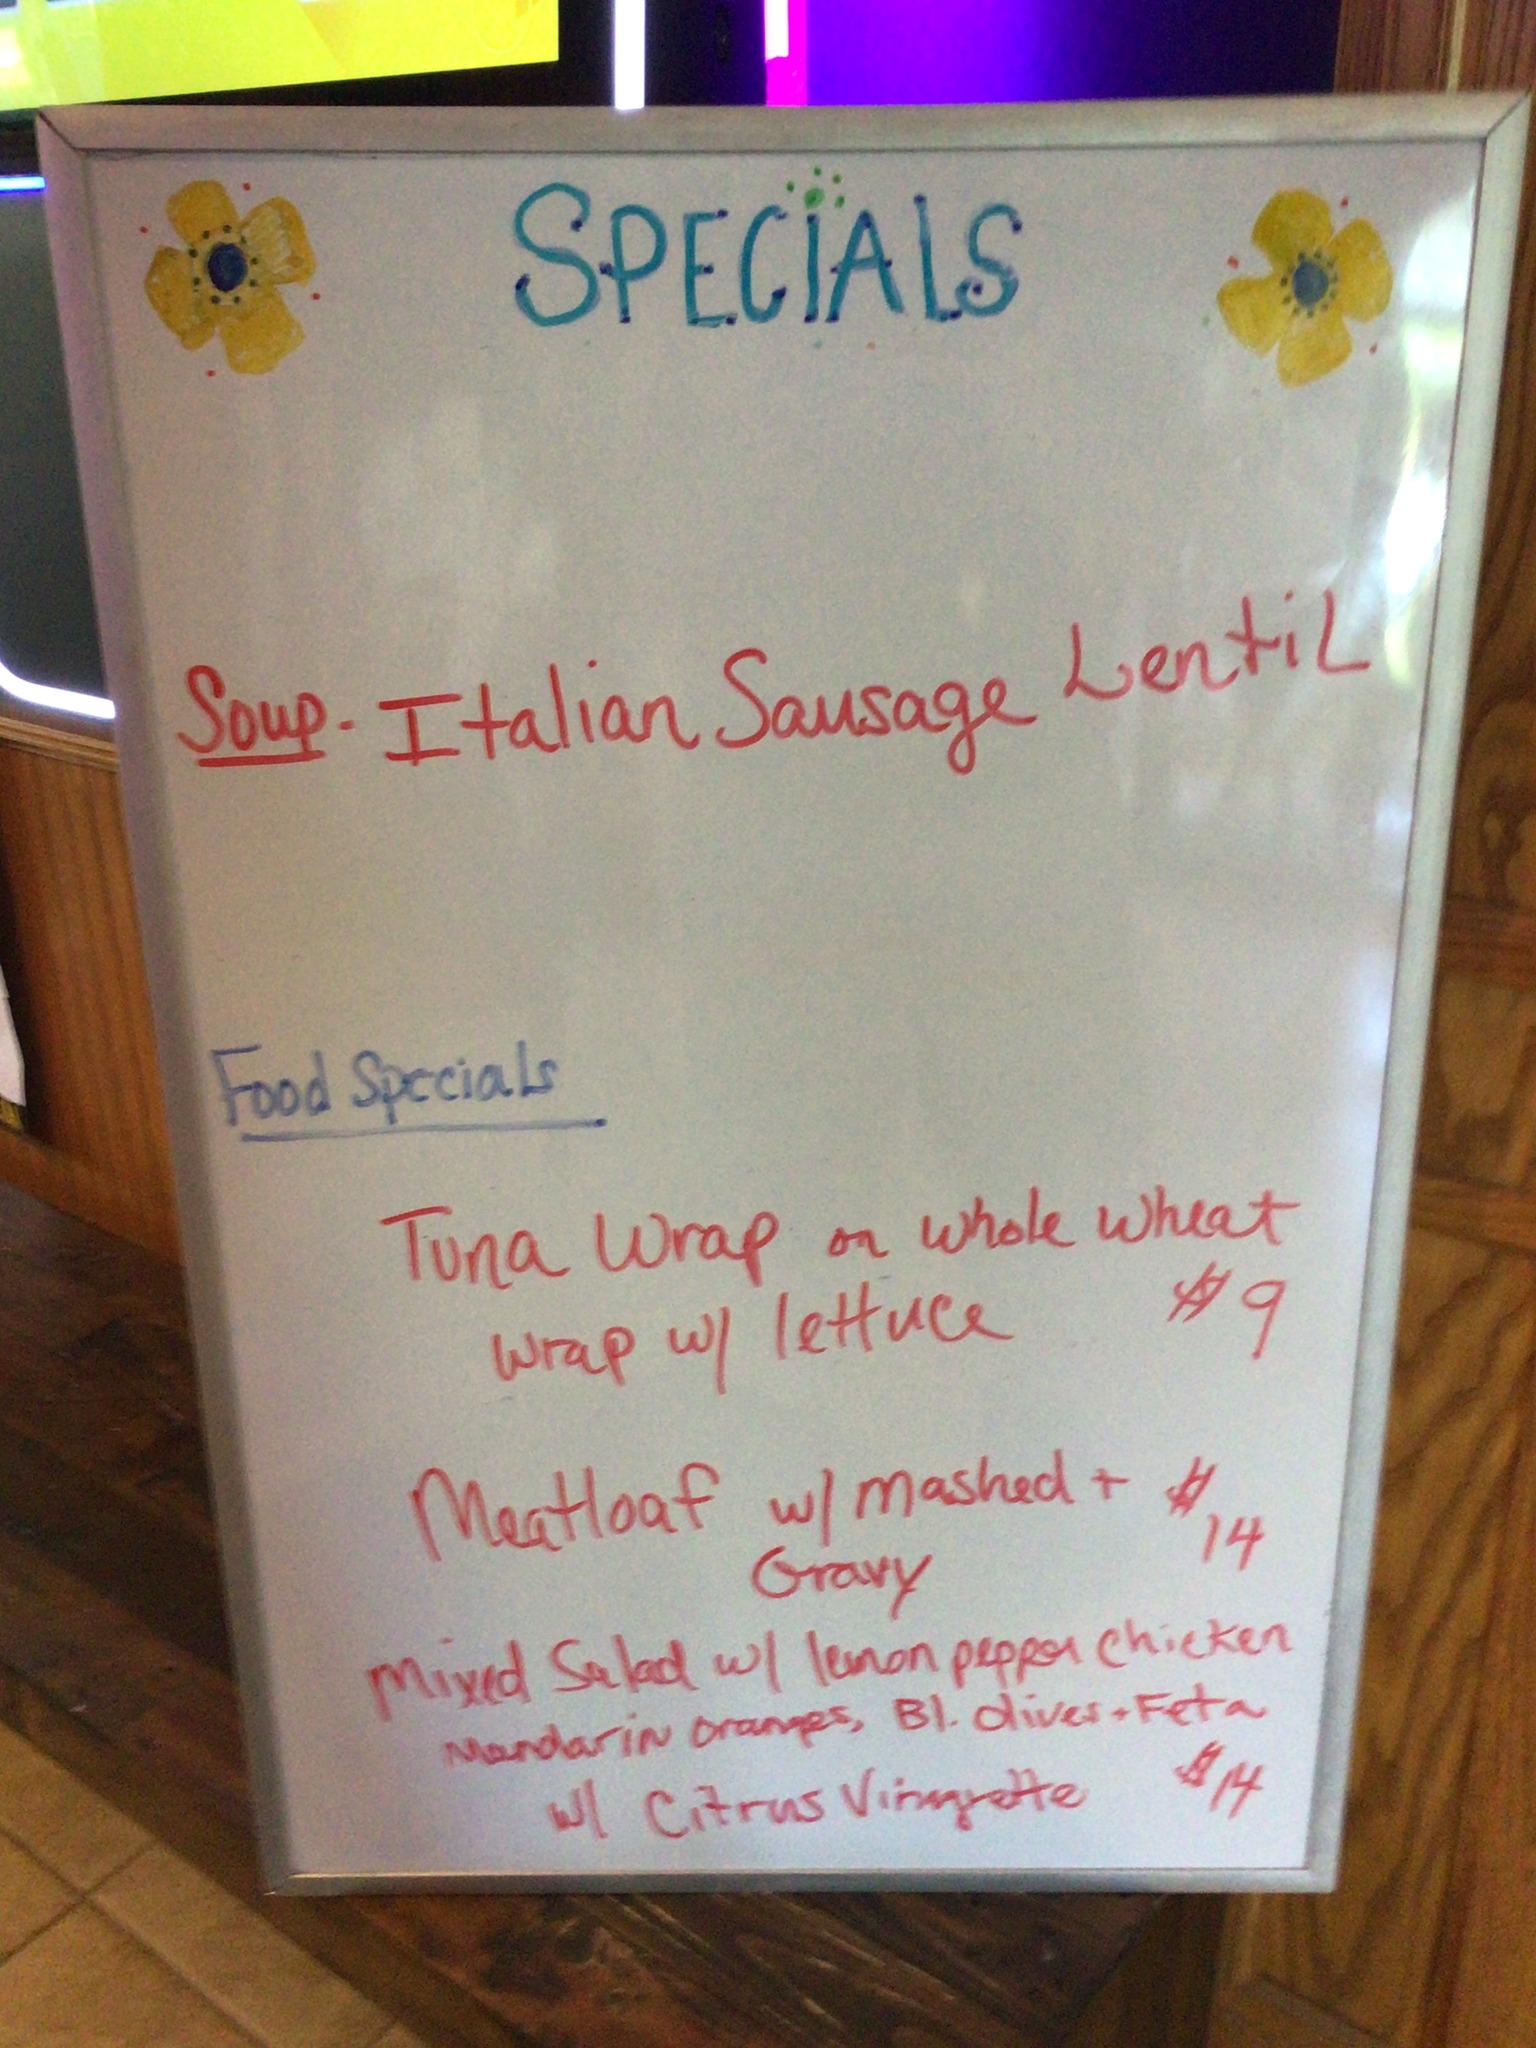 SPECIALS
Soup. Italian Sausage Lentil
Food Specials
Tuna Wrap on whole wheat
wrap w/ lettuce $9
Meatloaf w/ mashed + $14
Gravy
Mixed Salad w/ lemon pepper chicken
mandarin oranges, Bl. olives + Feta
w/ Citrus Viniagrette $14